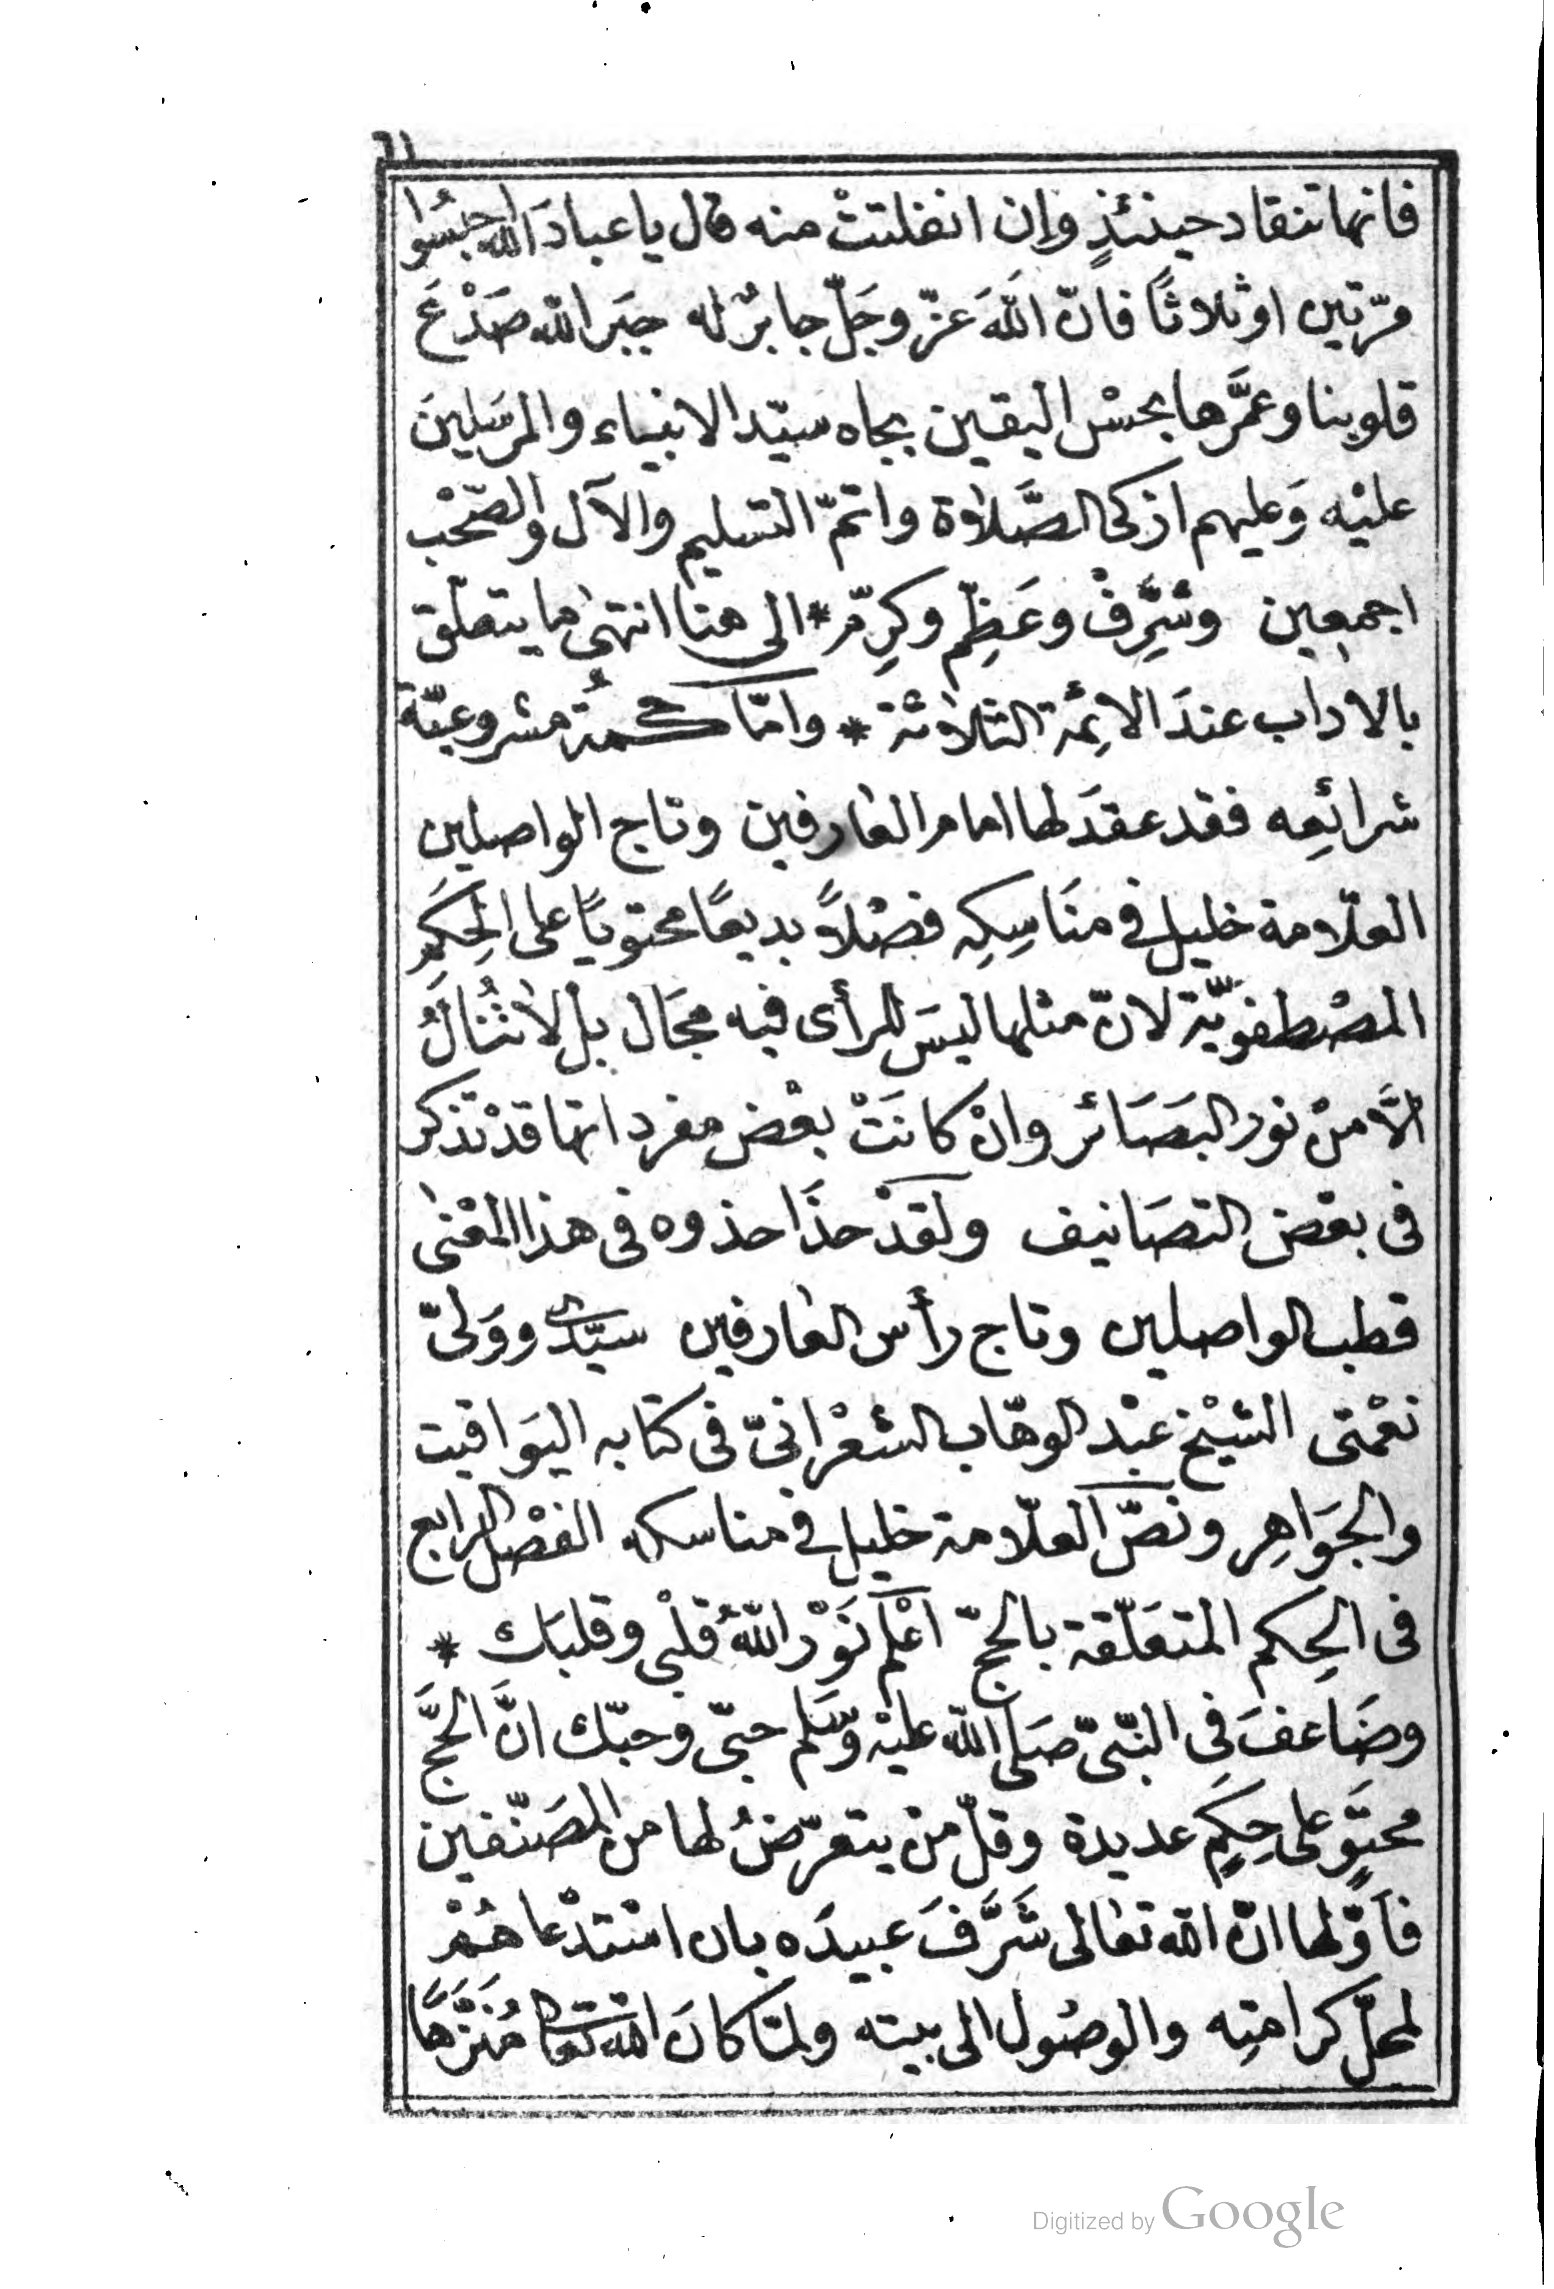 ٦١
فانها تنقاد حينئذٍ وإن انفلتتْ منه قال يا عبادَ الله احبِسُوا
مرّتين او ثلاثًا فانّ اللهَ عزّ وجَلّ جابرٌ له جبَر الله صَدْعَ
قلوبنا وعمَّرها بحسْن اليقين بجاه سيّد الانبياء والمرسَلينَ
عليْه وَعليهم ازكى الصَّلاوة واتمّ التسليم والآل والصّحْب
اجمعين وشَرِّفْ وعَظِّم وكرِّمْ * الى هنا انتهىٰ ما يتعلّق
بالاداب عندَ الائِمّة الثلاثة * وامّا حكمةُ مشروعيّة
شرائعِه فقد عقدَ لها امام العارفين وتاج الواصلين
العلّامة خليل فى منَاسِكِه فصْلاً بديعًا محتويًا على الحِكَمِ
المصْطفويّة لانّ مثلها ليسَ للرأى فيه مجَال بل لا تُنالُ
الّا منْ نور البصَائر وانْ كانَتْ بعْض مفرداتها قدْ تذكر
فى بعْض التصَانيف ولَقدْ حذَا حذوه فى هذا المعْنىٰ
قطب الواصلين وتاج رأس العارفين سيّدى ووَلىّ
نعْمتى الشيْخ عبْد الوهّاب الشعْرانىّ فى كتابه اليَواقيت
والجَواهِر ونصّ العلّامة خليل فى مناسكه الفصْل الرابع
فى الحِكم المتعَلّقة بالحجّ اعْلم نَوّرْ اللهُ قلْبى وقلبَك *
وضَاعفَ فى النّبىّ صَلى الله عليْه وَسَّلم حبّى وحبّك انَّ الحَجَّ
محتوٍ على حِكَمٍ عديدة وقلّ منْ يتعرّضُ لها من المصَنّفين
فأوّلها انّ الله تعالى شَرَّفَ عبيدَه بان اسْتدْعاهُمْ
لمحلّ كرامتِه والوصُول الى بيته ولمّا كانَ اللهُ تعالى مُنَزَّهًا
Digitized by Google